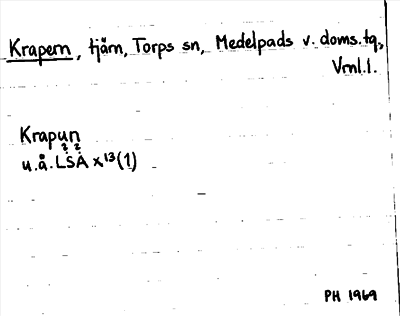 Krapern, tjärn, Torps sn, Medelpads v. doms. tg,
Vml.l.
Krapun
u.å. LSA x¹³(1)
PH 1969